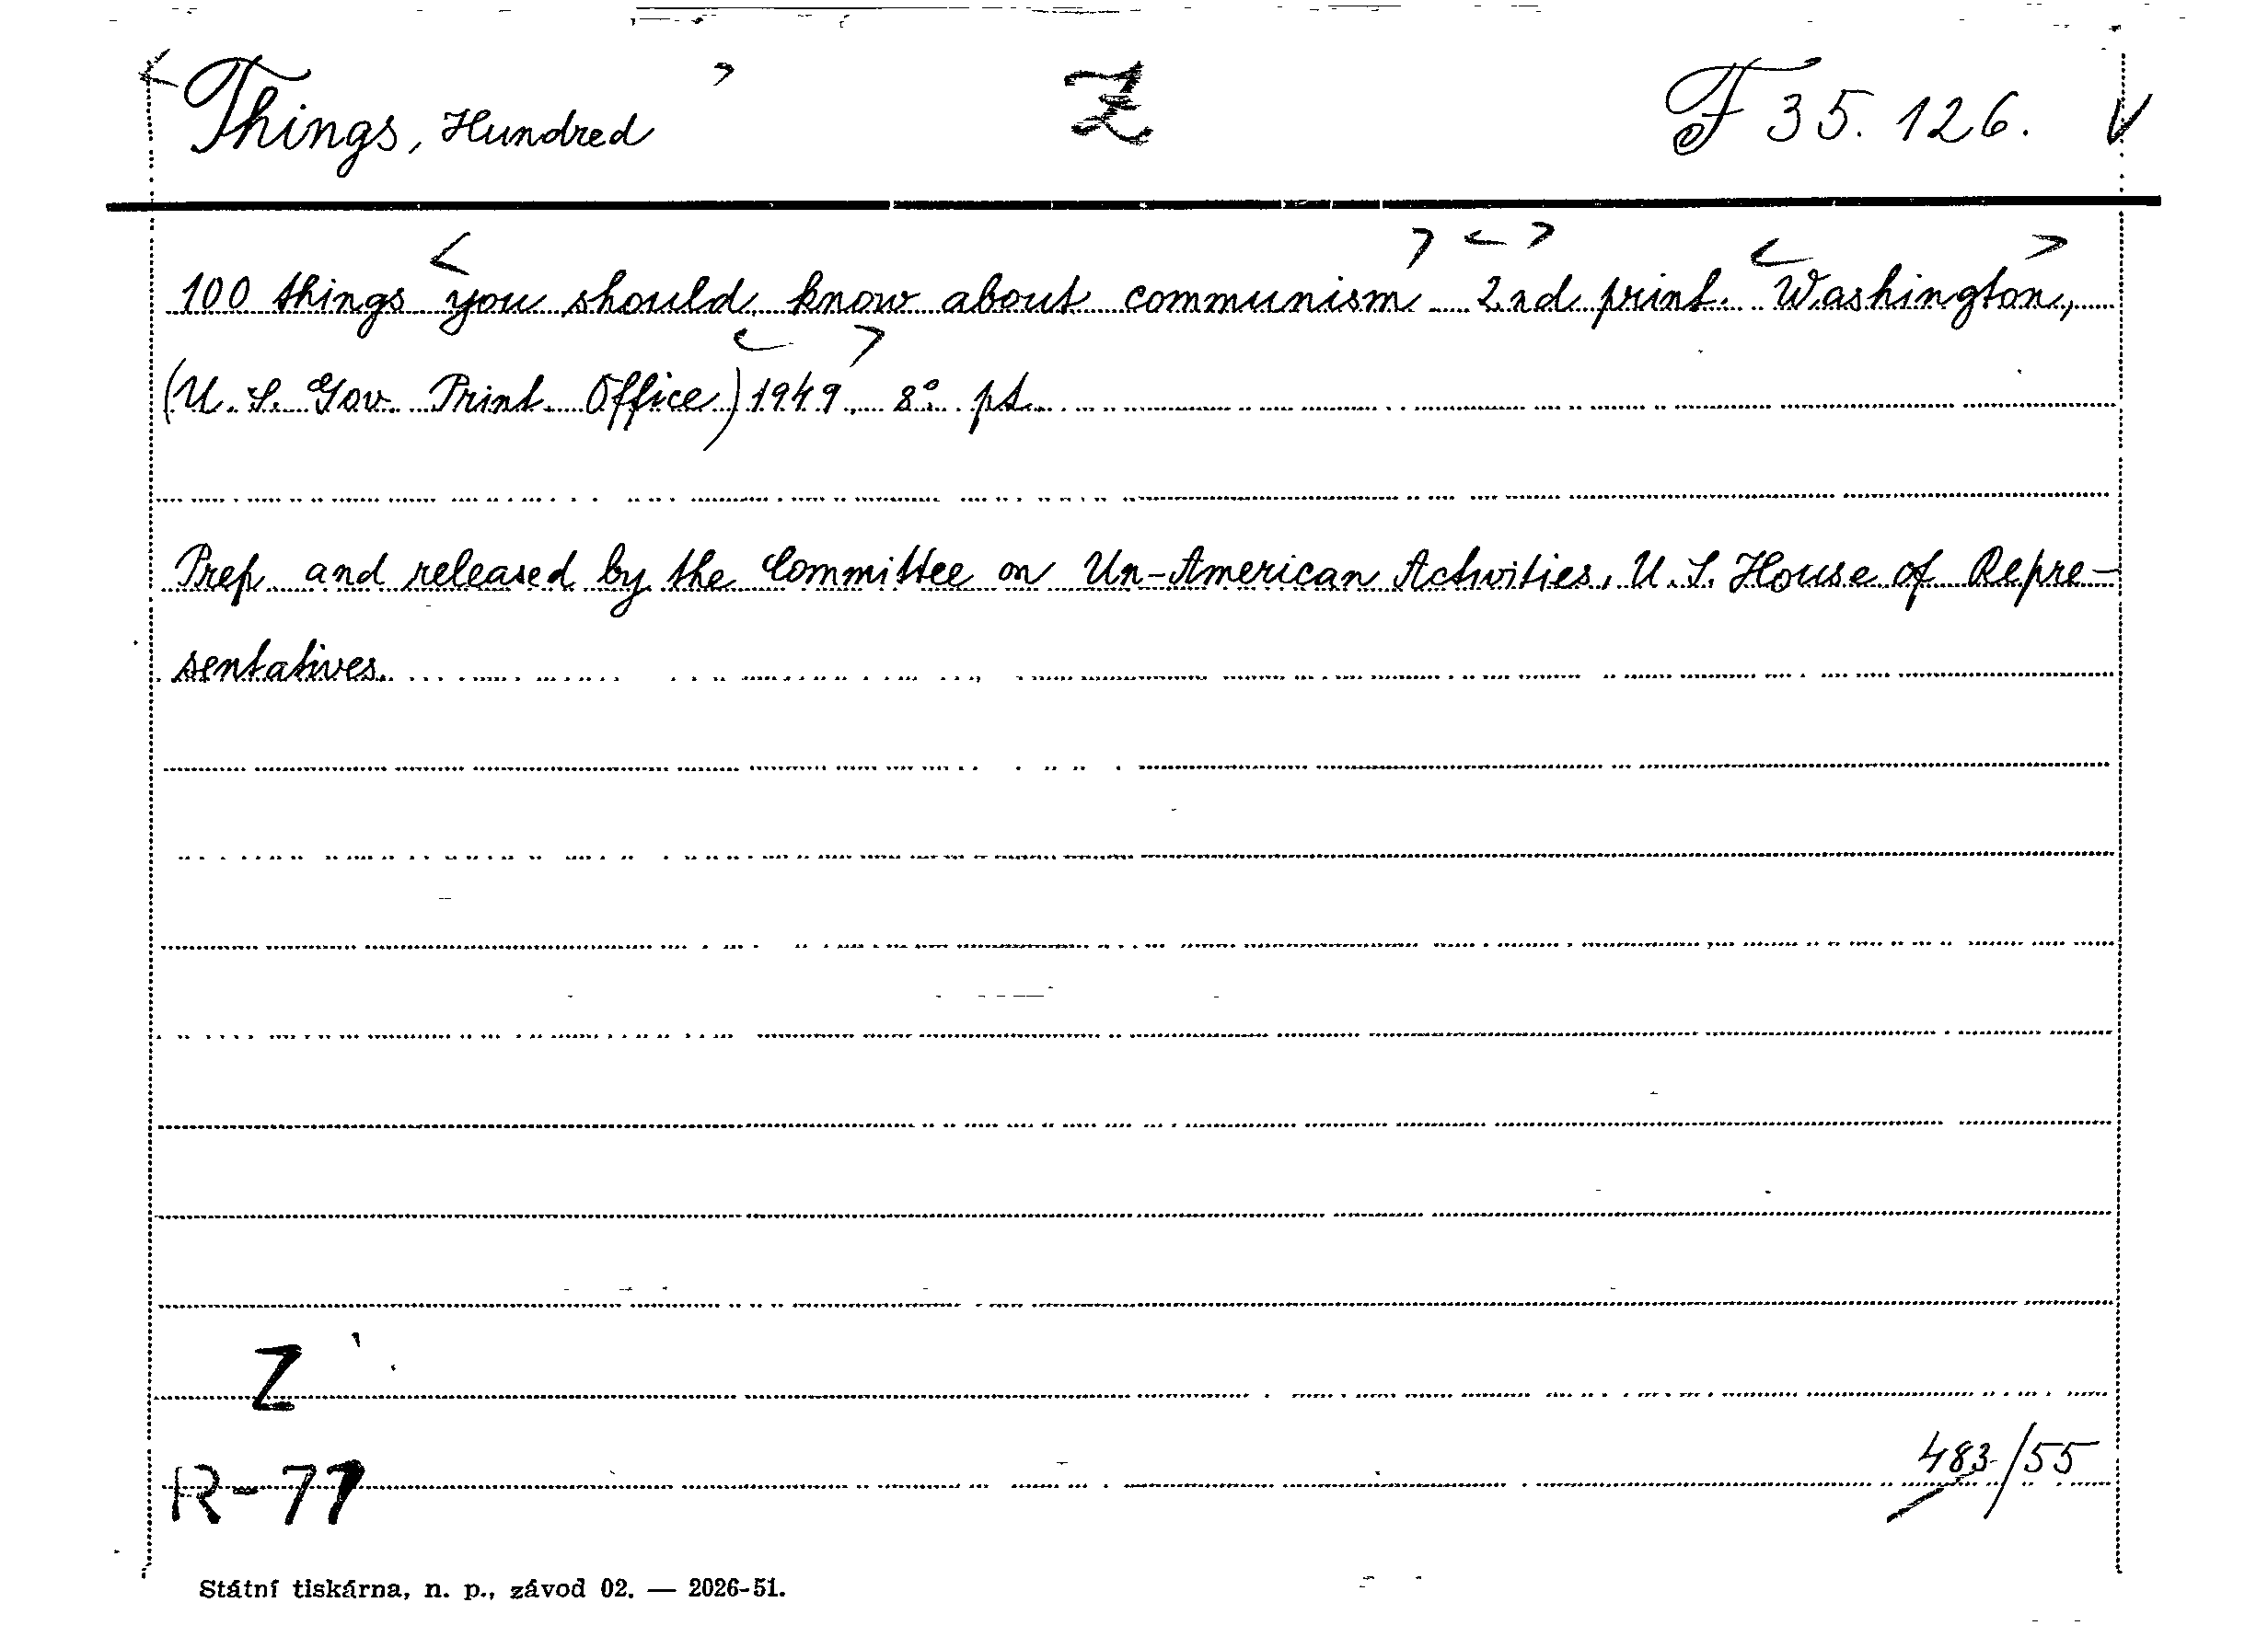 < Things, Hundred > Z F 35.126. V
100 things < you should know about communism > < 2nd > print. < Washington, >
(U. S. Gov. Print. Office) < 1949 >, 8° pt.
Prep. and released by the Committee on Un-American Activities, U. S. House of Repre-
sentatives.
Z
483/55
R-77
Státní tiskárna, n. p., závod 02. — 2026-51.